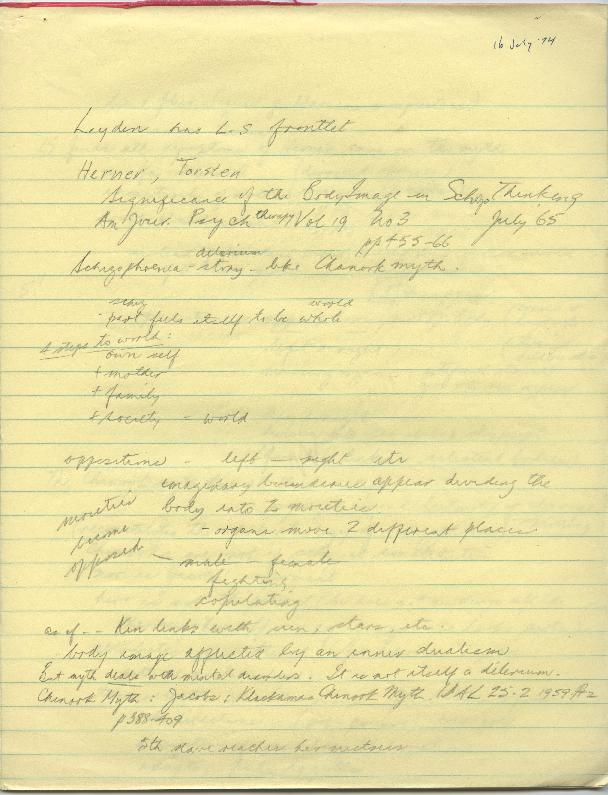 16 July '74
Leyden has L.S. frontlet
Herner, Torsten
Significance of the Body Image in Schizo Thinking
Am Jour. Psychtherapy Vol 19 No 3 July '65
pp 455-66
delirium
Schizophrenia - story - like Chanook myth.
schiz world
- part feels itself to be whole
4 steps to world:
own self
+ mother
+ family
+ society - world
oppositions - left - right etc
imaginary boundaries appear dividing the
body into 2 moieties
moieties
become
opposed
- organs move 2 different places
- male - female
fighting
copulating
as if -- Kin links with sun, stars, etc.
body image affected by an inner dualism
But myth deals with mental disorders. It is not itself a delirium.
Chinook Myth: Jacobs: Klackamas Chinook Myth IJAL 25-2 1959 Pt 2
p 388-409
5th